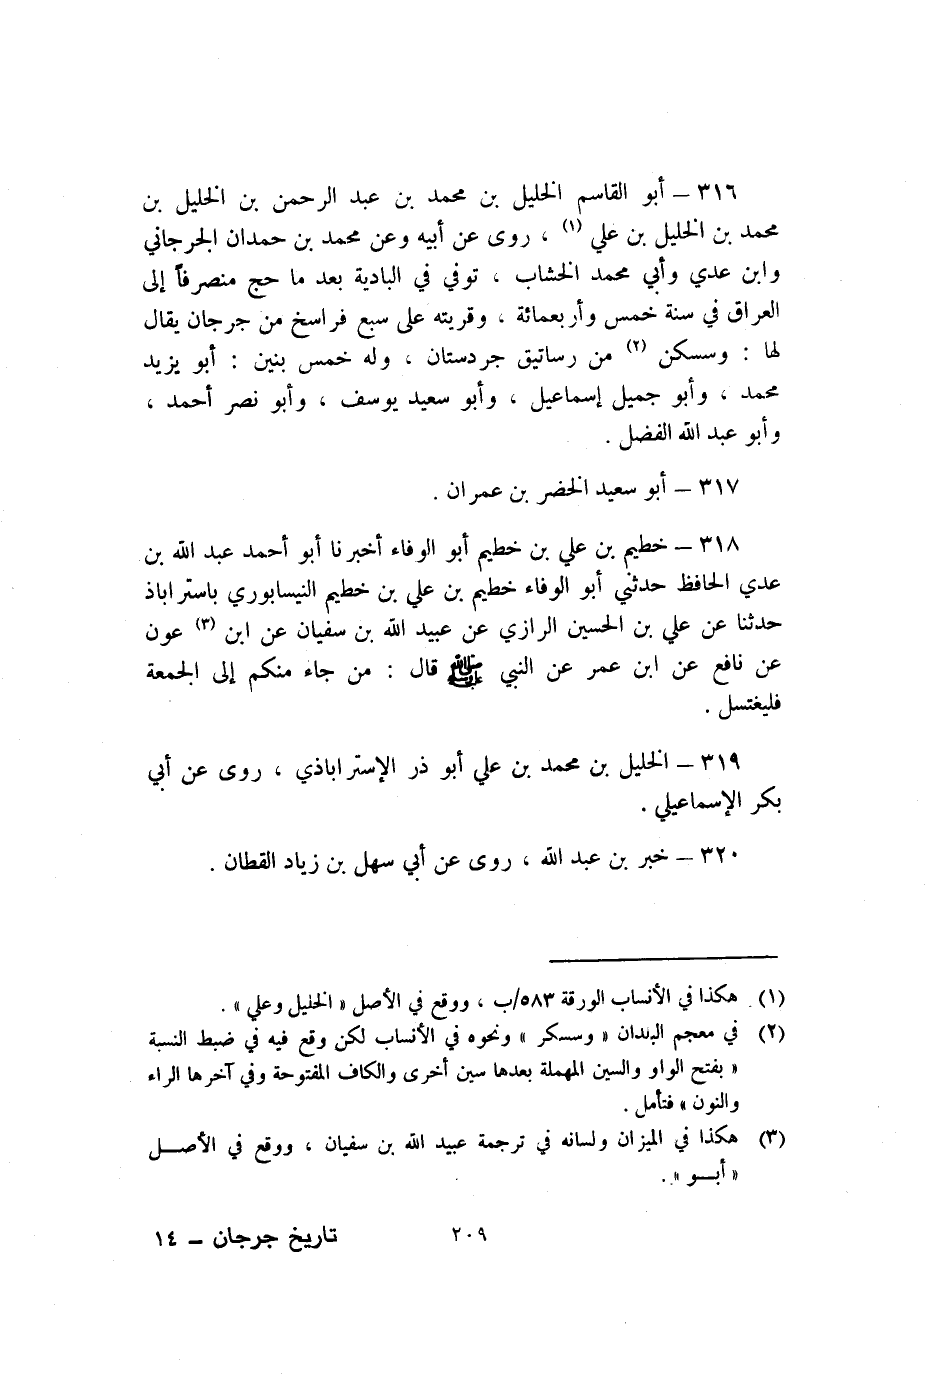 ٣١٦ ــ أبو القاسم الخليل بن محمد بن عبد الرحمن بن الخليل بن
محمد بن الخليل بن علي (١) ، روى عن أبيه وعن محمد بن حمدان الجرجاني
وابن عدي وأبي محمد الخشاب ، توفي في البادية بعد ما حج منصرفاً إلى
العراق في سنة خمس وأربعمائة ، وقريته على سبع فراسخ من جرجان يقال
لها : وسسكن (٢) من رساتيق جردستان ، وله خمس بنين : أبو يزيد
محمد ، وأبو جميل إسماعيل ، وأبو سعيد يوسف ، وأبو نصر أحمد ،
وأبو عبد الله الفضل .
٣١٧ ــ أبو سعيد الخضر بن عمران .
٣١٨ ــ خطيم بن علي بن خطيم أبو الوفاء أخبرنا أبو أحمد عبد الله بن
عدي الحافظ حدثني أبو الوفاء خطيم بن علي بن خطيم النيسابوري باستراباذ
حدثنا عن علي بن الحسين الرازي عن عبيد الله بن سفيان عن ابن (٣) عون
عن نافع عن ابن عمر عن النبي ﷺ قال : من جاء منكم إلى الجمعة
فليغتسل .
٣١٩ ــ الخليل بن محمد بن علي أبو ذر الإستراباذي ، روى عن أبي
بكر الإسماعيلي .
٣٢٠ ــ خبر بن عبد الله ، روى عن أبي سهل بن زياد القطان .
(١) هكذا في الأنساب الورقة ٥٨٣/ب ، ووقع في الأصل « الخليل وعلي » .
(٢) في معجم البلدان « وسسكر » ونحوه في الأنساب لكن وقع فيه في ضبط النسبة
« بفتح الواو والسين المهملة بعدها سين أخرى والكاف المفتوحة وفي آخرها الراء
والنون » فتأمل .
(٣) هكذا في الميزان ولسانه في ترجمة عبيد الله بن سفيان ، ووقع في الأصــل
« أبــو » .
٢٠٩
تاريخ جرجان ــ ١٤